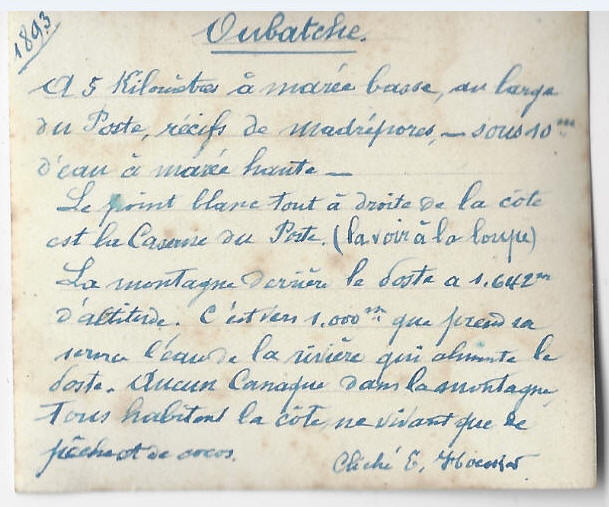 1893
Oubatche.
A 5 Kilomètres à marée basse, au large
du Poste, récifs de madrépores, - sous 10 m
d'eau à marée haute -
Le point blanc tout à droite de la côte
est la Caserne du Poste. (la voir à la loupe)
La montagne derrière le Poste a 1.642 m
d'altitude. C'est vers 1.000 m que prend sa
source l'eau de la rivière qui alimente le
Poste. Aucun Canaque dans la montagne,
Tous habitent la côte, ne vivant que de
pêche et de cocos.
Cliché E.